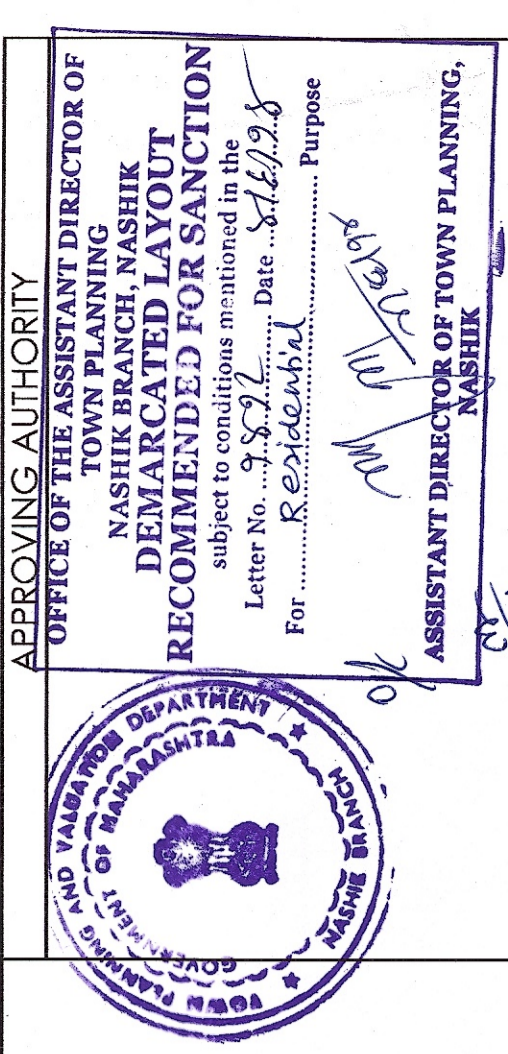 APPROVING AUTHORITY
OFFICE OF THE ASSISTANT DIRECTOR OF
TOWN PLANNING
NASHIK BRANCH, NASHIK
DEMARCATED LAYOUT
RECOMMENDED FOR SANCTION
subject to conditions mentioned in the
Letter No. ............ Date ............
For ........ Residential ........ Purpose
O/c
ASSISTANT DIRECTOR OF TOWN PLANNING,
NASHIK
TOWN PLANNING AND VALUATION DEPARTMENT
GOVERNMENT OF MAHARASHTRA
★ NASHIK BRANCH ★